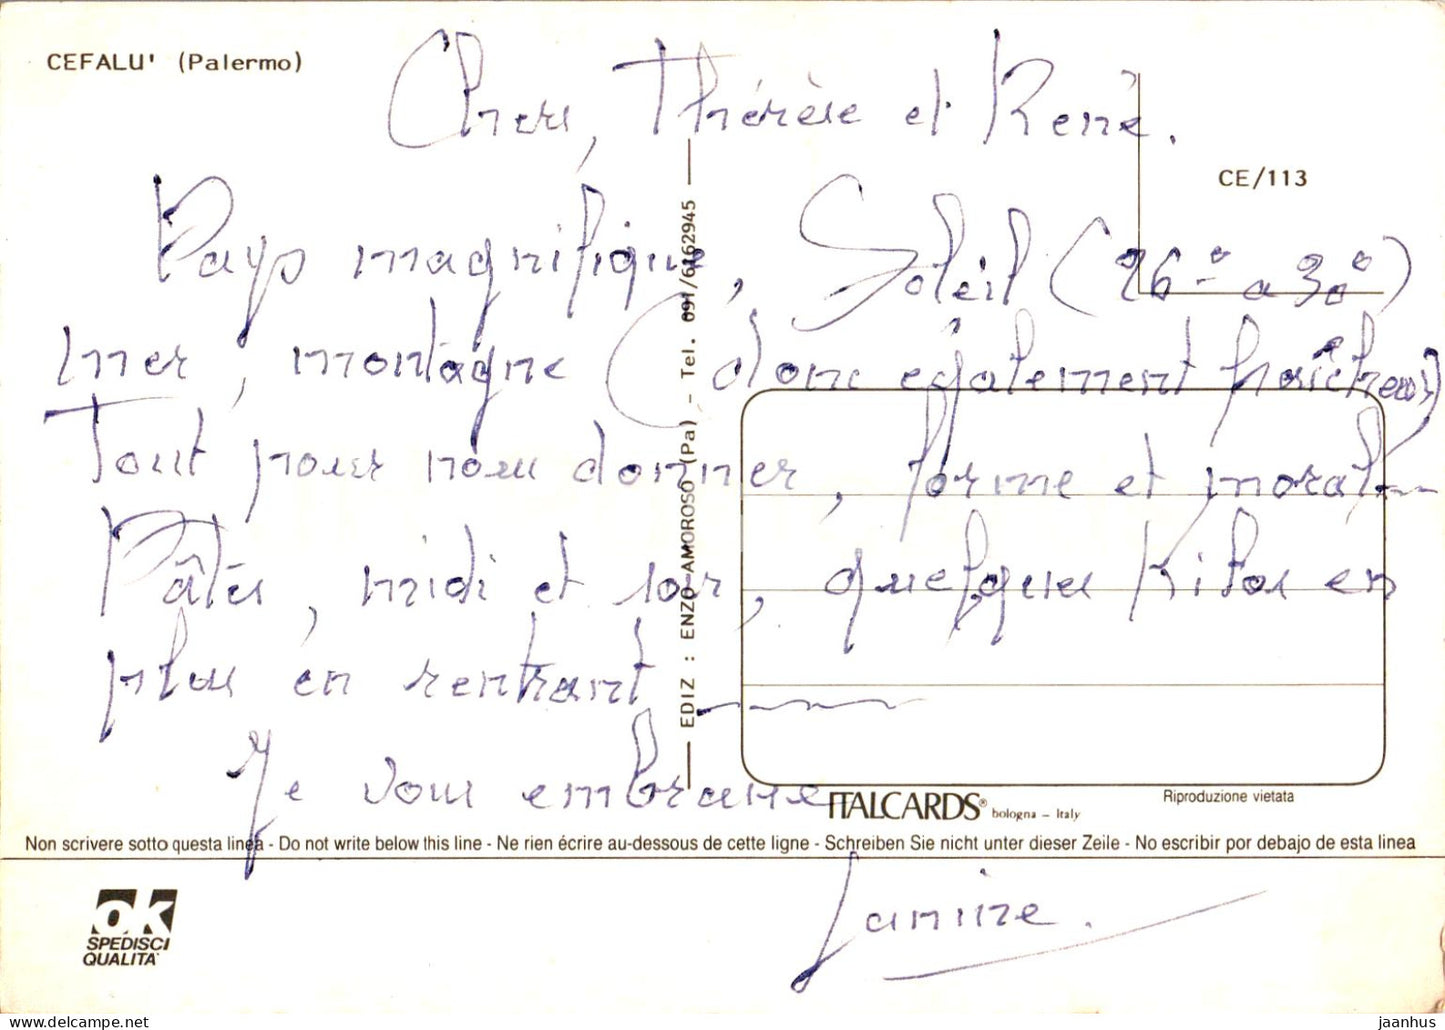 CEFALU' (Palermo)
Chers, Thérèse et René.
CE/113
Pays magnifique, Soleil (26° à 30°)
mer, montagne (donc également fraîcheur)
Tout pour nous donner, forme et moral
Pâtes, midi et soir, quelques Kilos en
plus en rentrant
Je vous embrasse
Janine.
EDIZ : ENZO AMOROSO (Pa) - Tel. 091/6162945
ITALCARDS® bologna - Italy
Riproduzione vietata
Non scrivere sotto questa linea - Do not write below this line - Ne rien écrire au-dessous de cette ligne - Schreiben Sie nicht unter dieser Zeile - No escribir por debajo de esta linea
OK
SPEDISCI
QUALITA'
delcampe.net
jaanhus